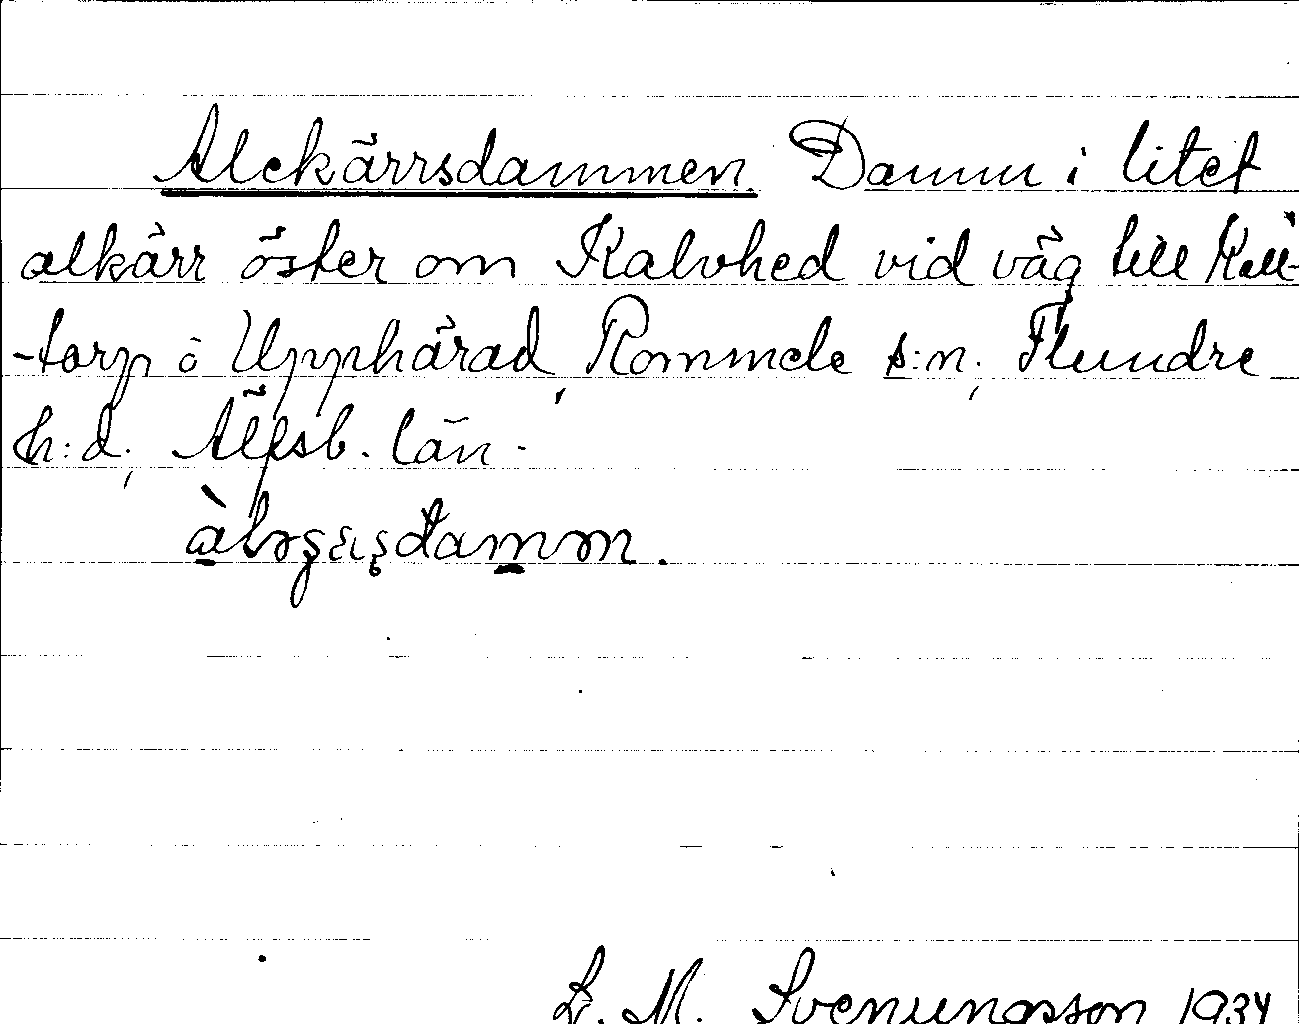 Alekärrsdammen. Damm i litet
alkärr öster om Kalvhed vid väg till Käll-
-torp ö Upphärad, Rommele s:n; Flundre
h:d; Älfsb. län.
L. M. Svenungsson 1934